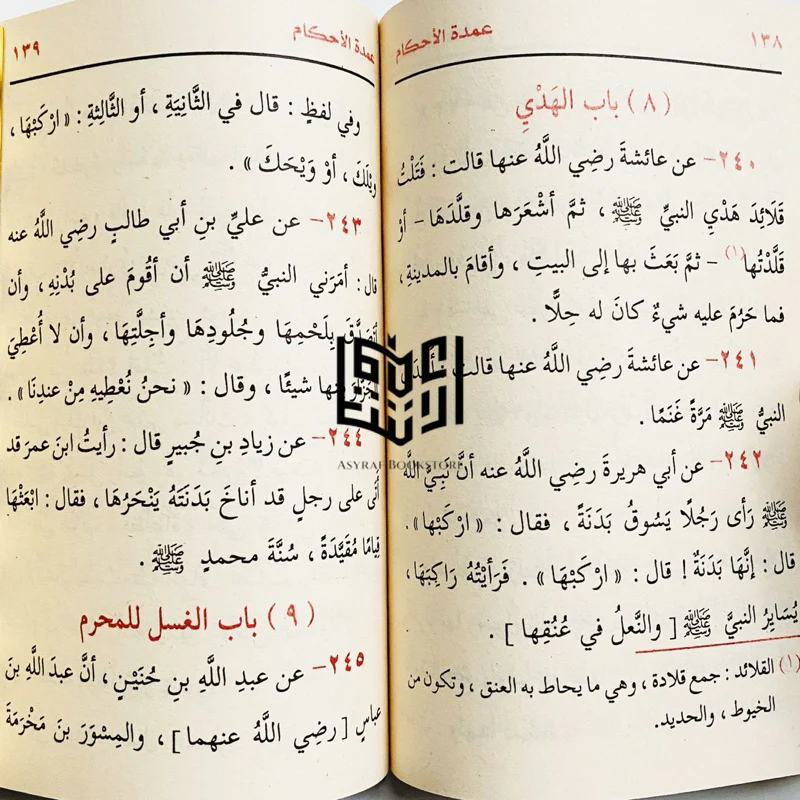 ١٣٨
عمدة الأحكام
( ٨ ) باب الهَدْيِ
٢٤٠- عن عائشةَ رضي اللَّهُ عنها قالت : فَتَلْتُ
قَلَائِدَ هَدْيِ النبيِّ ﷺ ، ثمَّ أشْعَرَها وقلَّدَها - أوْ
قَلَّدْتُها(١) - ثمَّ بَعَثَ بها إلى البيتِ ، وأقامَ بالمدينةِ ،
فما حَرُمَ عليه شيءٌ كانَ له حِلًّا .
٢٤١- عن عائشةَ رضي اللَّهُ عنها قالت :
النبيُّ ﷺ مَرَّةً غَنَمًا .
٢٤٢- عن أبي هريرةَ رضي اللَّهُ عنه أنَّ نبِيَّ اللَّهِ
ﷺ رَأى رَجُلًا يَسُوقُ بَدَنَةً ، فقال : « ارْكَبْها » .
قال : إنَّهَا بَدَنَةٌ ! قال : « ارْكَبْهَا » . فَرَأيْتُهُ رَاكِبَهَا ،
يُسَايِرُ النبيَّ ﷺ [ والنَّعلُ في عُنُقِها ] .
(١) القلائد : جمع قلادة ، وهي ما يحاط به العنق ، وتكون من
الخيوط ، والحديد .
عمدة الأحكام
١٣٩
وفي لفظٍ : قال في الثَّانِيَةِ ، أو الثَّالِثةِ : « ارْكَبْهَا ،
ويْلَكَ ، أوْ وَيْحَكَ » .
٢٤٣- عن عليِّ بنِ أبي طالبٍ رضي اللَّهُ عنه
قال : أمَرَني النبيُّ ﷺ أن أقُومَ على بُدْنِهِ ، وأن
بِلَحْمِهَا وجُلُودِهَا وأجِلَّتِهَا ، وأن لا أُعْطِيَ
شيئًا ، وقال : « نحنُ نُعْطِيهِ مِنْ عندِنَا » .
٢٤٤- عن زيادِ بنِ جُبيرٍ قال : رأيتُ ابنَ عمرَ قد
أتَى على رجلٍ قد أناخَ بَدَنَتَهُ يَنْحَرُهَا ، فقال : ابْعَثْهَا
قِيَامًا مُقَيَّدَةً ، سُنَّةَ محمدٍ ﷺ .
( ٩ ) باب الغسل للمحرم
٢٤٥- عن عبدِ اللَّهِ بنِ حُنَيْنٍ ، أنَّ عبدَ اللَّهِ بنَ
عباسٍ [ رضي اللَّهُ عنهما ] ، والمِسْوَرَ بنَ مَخْرَمَةَ
ASYRAF BOOKSTORE